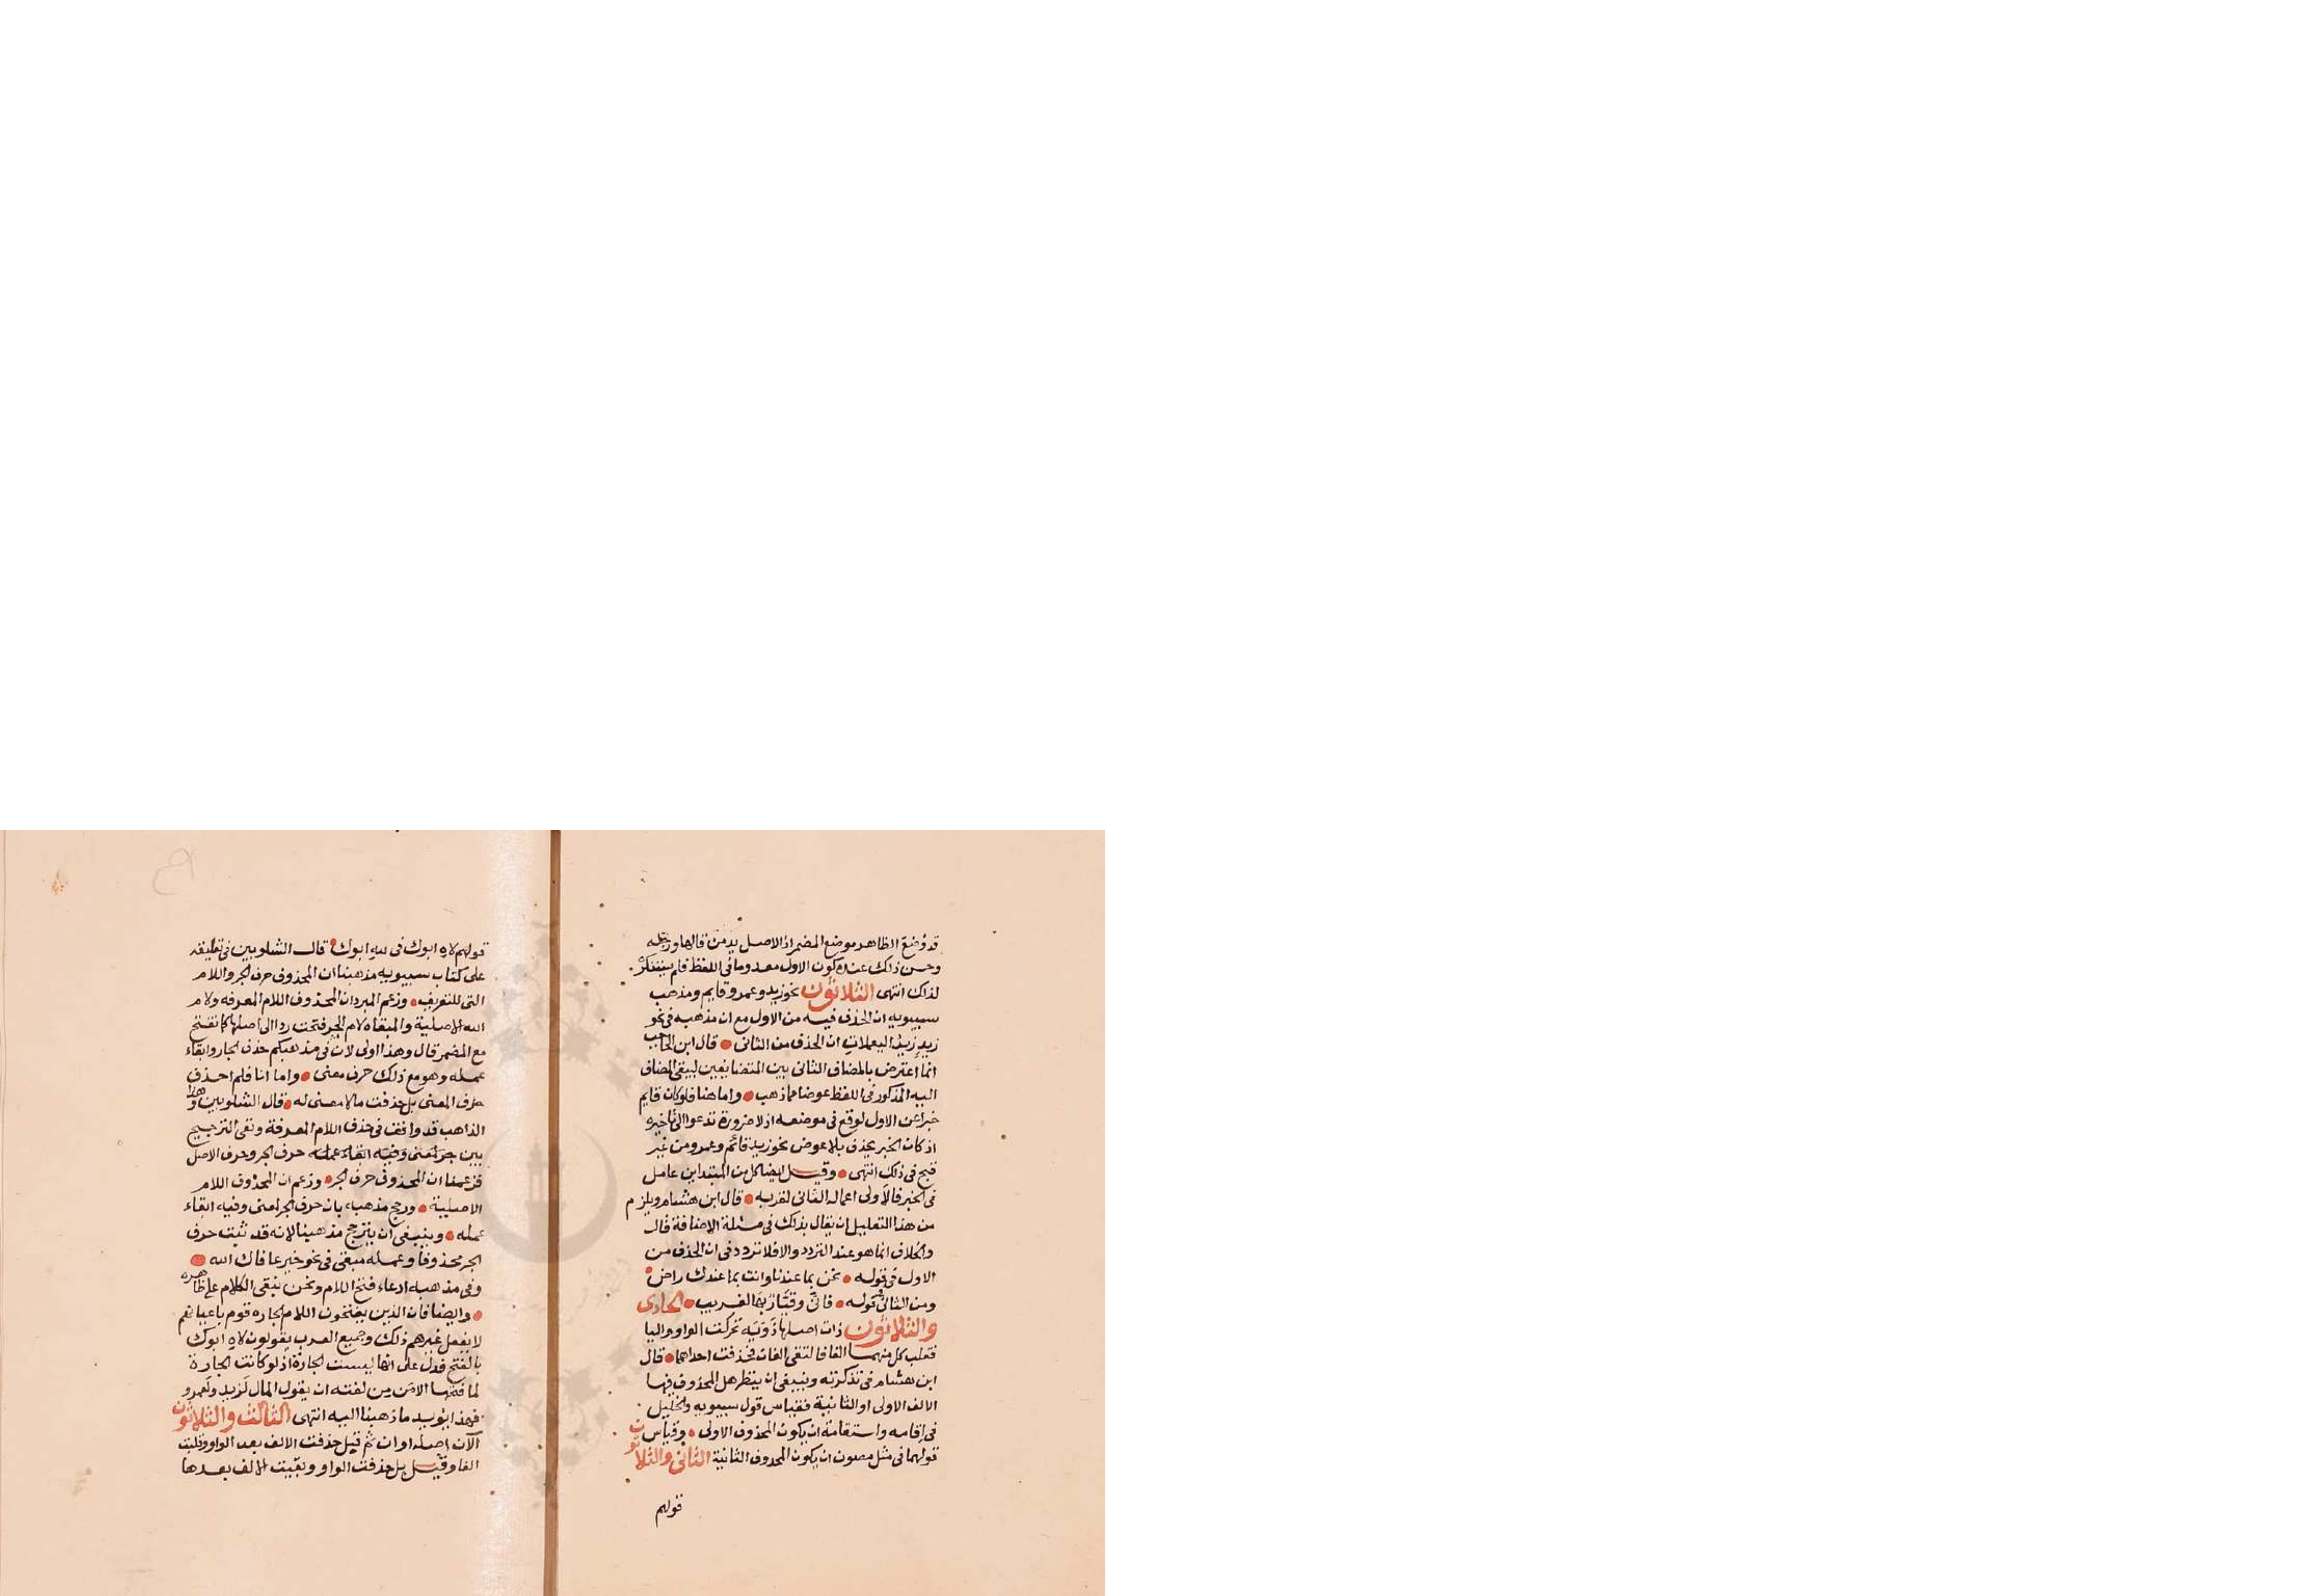 قد وُضعَ الظاهر موضع المضمر اذ الاصل يد من قالها ورجله
وحسن ذلك عنده كون الاول معدوما فى اللفظ فلم يستنكر
لذلك انتهى الثلاثون نحو زيد وعمرو قايم ومذهب
سيبويه ان الحذف فيه من الاول مع ان مذهبه فى نحو
زيدِ زيدُ اليعملاتِ ان الحذف من الثانى قال ابن الحاجب
انما اعترض بالمضاف الثانى بين المتضايفين ليبقى المضاف
اليه المذكور فى اللفظ عوضا مما ذهب واما هنا فلو كان قايم
خبرا عن الاول لوقع فى موضعه اذ لا ضرورة تدعوا الى تاخيره
اذ كان الخبر يحذف بلا عوض نحو زيد قائم وعمرو من غير
قبح فى ذلك انتهى وقيل ايضا كل من المبتداين عامل
فى الخبر فالاولى اعمال الثانى لقربه قال ابن هشام ويلزم
من هذا التعليل ان يقال بذلك فى مسئلة الاضافة قال
والخلاف انما هو عند التردد والا فلا تردد فى ان الحذف من
الاول فى قوله نحن بما عندنا وانت بما عندك راض
ومن الثانى فى قوله فانى وقيار بها لغريب الحادى
والثلاثون ذات اصلها ذَوَيَه تحركت الواو واليا
فقلب كل منهما الفا فالتقى الفان فحذفت احداهما قال
ابن هشام فى تذكرته وينبغى ان ينظر هل المحذوف فيها
الالف الاولى او الثانية فقياس قول سيبويه والخليل
فى اقامه واستقامة ان يكون المحذوف الاولى وقياس
قولهما فى مثل مصون ان يكون المحذوف الثانية الثانى والثلاثون
قولهم
قولهم لاهِ ابوك فى لله ابوك قال الشلوبين فى تعليقه
على كتاب سيبويه مذهبنا ان المحذوف حرف الجر واللام
التى للتعريف وزعم المبرد ان المحذوف اللام المعرفه ولام
الله الاصلية والمبقاه لام الجر فتحت ردا الى اصلها كما تفتح
مع المضمر قال وهذا اولى لان فى مذهبكم حذف الجار وابقاء
عمله وهو مع ذلك حرف معنى واما انا فلم احذف
حرف المعنى بل حذفت ما لا معنى له قال الشلوبين وهذا
الذاهب قد وافق فى حذف اللام المعرفة وبقى الترجيح
بين حرف الجر وحرف الاصل
فزعمنا ان المحذوف حرف الجر وزعم ان المحذوف اللام
الاصلية ورجح مذهبه بان حرف الجر لمعنى وفيه ابقاء
عمله وينبغى ان يترجح مذهبنا لانه قد ثبت حرف
الجر محذوفا وعمله مبقى فى نحو خير عافاك الله
وفى مذهبه ادعاء فتح اللام ونحن نبقى الكلام على ظاهره
وايضا فان الذين يفتحون اللام الجاره قوم باعيانهم
لا يفعل غيرهم ذلك وجميع العرب يقولون لاهِ ابوك
بالفتح فدل على انها ليست الجارة اذ لو كانت الجارة
لما فتحها الا من من لغته ان يقول المال لَزيد ولَعمرو
فهذا يؤيد ما ذهبنا اليه انتهى الثالث والثلاثون
الآن اصله اوان ثم قيل حذفت الالف بعد الواو وقلبت
الفا وقيل بل حذفت الواو وبقيت الالف بعدها